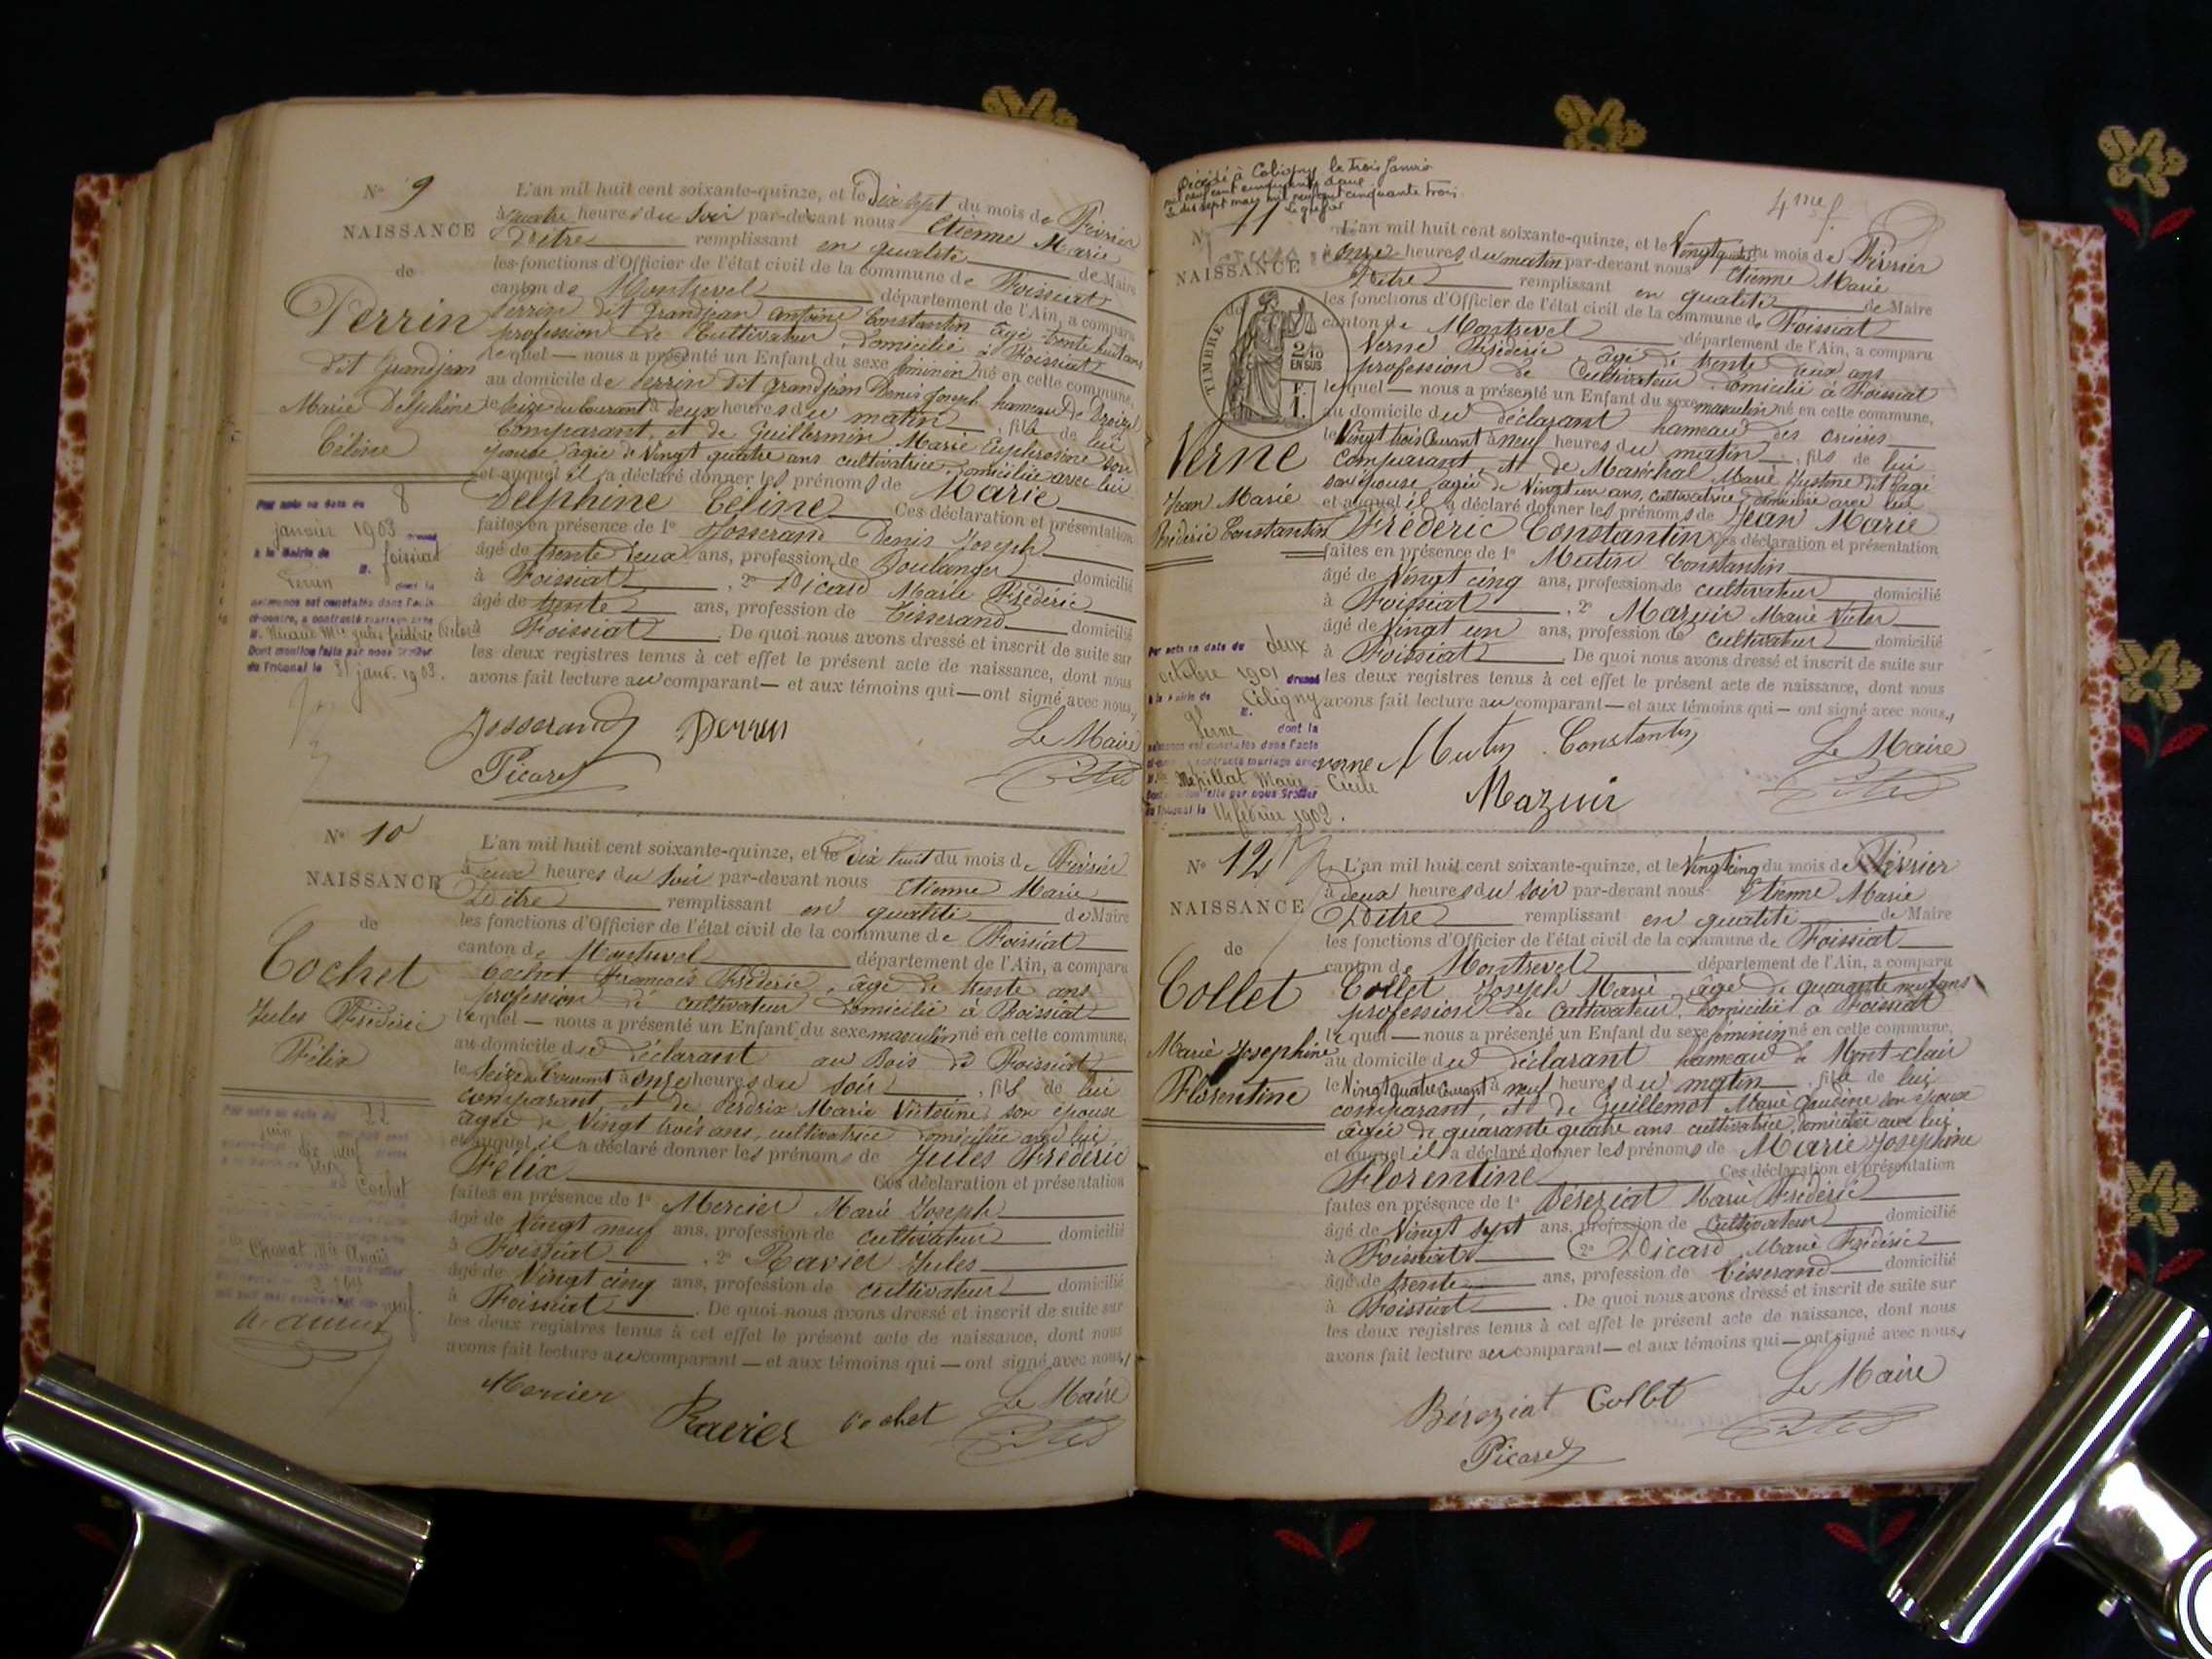 N° 9
NAISSANCE
de
Perrin
dit Grandjean
Marie Delphine
Céline
L'an mil huit cent soixante-quinze, et le Dix sept du mois de Février
à quatre heures du Soir par-devant nous Etienne Marie
remplissant en qualité de Maire
les fonctions d'Officier de l'état civil de la commune de Foissiat
canton de Montrevel département de l'Ain, a comparu
Perrin dit Grandjean Antoine Constantin âgé trente huit ans
profession de Cultivateur, domicilié à Foissiat
lequel — nous a présenté un Enfant du sexe féminin né en cette commune,
au domicile de Perrin dit Grandjean Denis Joseph hameau de
le Seize du Courant à deux heures du matin, fille de lui
Comparant, et de Guillermin Marie Euphrosine son
épouse âgée de Vingt quatre ans cultivatrice, domiciliée avec lui
et auquel il a déclaré donner les prénoms de Marie
Delphine Céline Ces déclaration et présentation
faites en présence de 1° Josserand Denis Joseph
âgé de trente deux ans, profession de Boulanger domicilié
à Foissiat, 2° Picard Marie Frédéric
âgé de trente ans, profession de Tisserand domicilié
à Foissiat. De quoi nous avons dressé et inscrit de suite sur
les deux registres tenus à cet effet le présent acte de naissance, dont nous
avons fait lecture au comparant — et aux témoins qui — ont signé avec nous,
Par acte en date du 8
janvier 1903 dressé
à la Mairie de Foissiat
M. Perrin dont la
naissance est constatée dans l'acte
ci-contre, a contracté mariage avec
Dont mention faite par nous Greffier
du Tribunal le 31 janv. 1903.
Josserand Perrin Le Maire
Picard
N° 10
NAISSANCE
de
Cochet
Jules Frédéric
Félix
L'an mil huit cent soixante-quinze, et le dix huit du mois de Février
à Deux heures du Soir par-devant nous Etienne Marie
remplissant en qualité de Maire
les fonctions d'Officier de l'état civil de la commune de Foissiat
canton de Montrevel département de l'Ain, a comparu
Cochet François Frédéric, âgé de trente ans
profession de cultivateur domicilié à Foissiat
lequel — nous a présenté un Enfant du sexe masculin né en cette commune,
au domicile du déclarant au Bois de Foissiat
le Seize du Courant à onze heures du soir, fils de lui
comparant et de Perdrix Marie Victorine son épouse
âgée de Vingt trois ans, cultivatrice domiciliée avec lui,
et auquel il a déclaré donner les prénoms de Jules Frédéric
Félix Ces déclaration et présentation
faites en présence de 1° Mercier Marie Joseph
âgé de Vingt neuf ans, profession de cultivateur domicilié
à Foissiat, 2° Ravier Jules
âgé de Vingt cinq ans, profession de cultivateur domicilié
à Foissiat. De quoi nous avons dressé et inscrit de suite sur
les deux registres tenus à cet effet le présent acte de naissance, dont nous
avons fait lecture au comparant — et aux témoins qui — ont signé avec nous,
juin
dix neuf
Cochet
Mercier Ravier Cochet Le Maire
Décédé à Coligny le trois Janvier
mil neuf cent cinquante
Le dix sept mars mil neuf cent cinquante trois.
Le greffier
4me f
N° 11
NAISSANCE
de
TIMBRE
2/10
EN SUS
F.
1.
Verne
Jean Marie
Frédéric Constantin
L'an mil huit cent soixante-quinze, et le Vingt quatre du mois de Février
à onze heures du matin par-devant nous Etienne Marie
remplissant en qualité de Maire
les fonctions d'Officier de l'état civil de la commune de Foissiat
canton de Montrevel département de l'Ain, a comparu
Verne Frédéric âgé de trente deux ans
profession de Cultivateur domicilié à Foissiat
lequel — nous a présenté un Enfant du sexe masculin né en cette commune,
au domicile du déclarant hameau des
le Vingt trois Courant à neuf heures du matin, fils de lui
comparant, et de Maréchal Marie Justine
son épouse âgée de Vingt un ans, cultivatrice domiciliée avec lui
et auquel il a déclaré donner les prénoms de Jean Marie
Frédéric Constantin Ces déclaration et présentation
faites en présence de 1° Mutin Constantin
âgé de Vingt cinq ans, profession de cultivateur domicilié
à Foissiat, 2° Mazuir Marie Victor
âgé de Vingt un ans, profession de cultivateur domicilié
à Foissiat. De quoi nous avons dressé et inscrit de suite sur
les deux registres tenus à cet effet le présent acte de naissance, dont nous
avons fait lecture au comparant — et aux témoins qui — ont signé avec nous,
Par acte en date du deux
octobre 1901 dressé
à la Mairie de Coligny
M. Verne dont la
naissance est constatée dans l'acte
ci-contre a contracté mariage avec
Mlle Marie Cécile
Dont mention faite par nous Greffier
du Tribunal le 14 février 1902.
verne Mutin Constantin Le Maire
Mazuir
N° 12
NAISSANCE
de
Collet
Marie Josephine
Florentine
L'an mil huit cent soixante-quinze, et le Vingt cinq du mois de Février
à deux heures du soir par-devant nous Etienne Marie
remplissant en qualité de Maire
les fonctions d'Officier de l'état civil de la commune de Foissiat
canton de Montrevel département de l'Ain, a comparu
Collet Joseph Marie âgé de quarante neuf ans
profession de Cultivateur, domicilié à Foissiat
lequel — nous a présenté un Enfant du sexe féminin né en cette commune,
au domicile du déclarant hameau de Mont-clair
le Vingt quatre Courant à neuf heures du matin, fille de lui
comparant, et de Guillemot Marie Claudine son épouse
âgée de quarante quatre ans cultivatrice, domiciliée avec lui,
et auquel il a déclaré donner les prénoms de Marie Josephine
Florentine Ces déclaration et présentation
faites en présence de 1° Béréziat Marie Frédéric
âgé de Vingt sept ans, profession de cultivateur domicilié
à Foissiat 2° Picard Marie Frédéric
âgé de trente ans, profession de tisserand domicilié
à Foissiat. De quoi nous avons dressé et inscrit de suite sur
les deux registres tenus à cet effet le présent acte de naissance, dont nous
avons fait lecture au comparant — et aux témoins qui — ont signé avec nous,
Béréziat Collet Le Maire
Picard